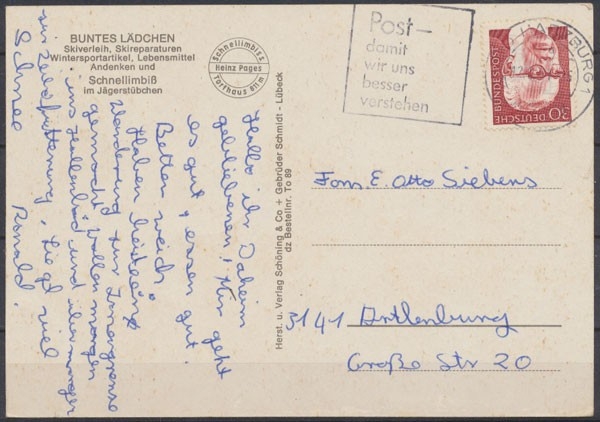 BUNTES LÄDCHEN
Skiverleih, Skireparaturen
Wintersportartikel, Lebensmittel
Andenken und
Schnellimbiß
im Jägerstübchen
Schnellimbiss
Heinz Pages
Torfhaus 811 m
Hallo ihr Daheim
gebliebenen! Mir geht
es gut, essen gut.
Betten weich.
Haben heute eine
Wanderung zur Zonengrenze
gemacht. Wollen morgen
ins Hallenbad und übermorgen
zur Wildfütterung. Liegt viel
Schnee Ronald.
Herst. u. Verlag Schöning & Co + Gebrüder Schmidt - Lübeck
dz Bestellnr. To 89
Post –
damit
wir uns
besser
verstehen
DEUTSCHE BUNDESPOST
30
Fam. E. Otto Siebens
3141 Artlenburg
Große Str 20